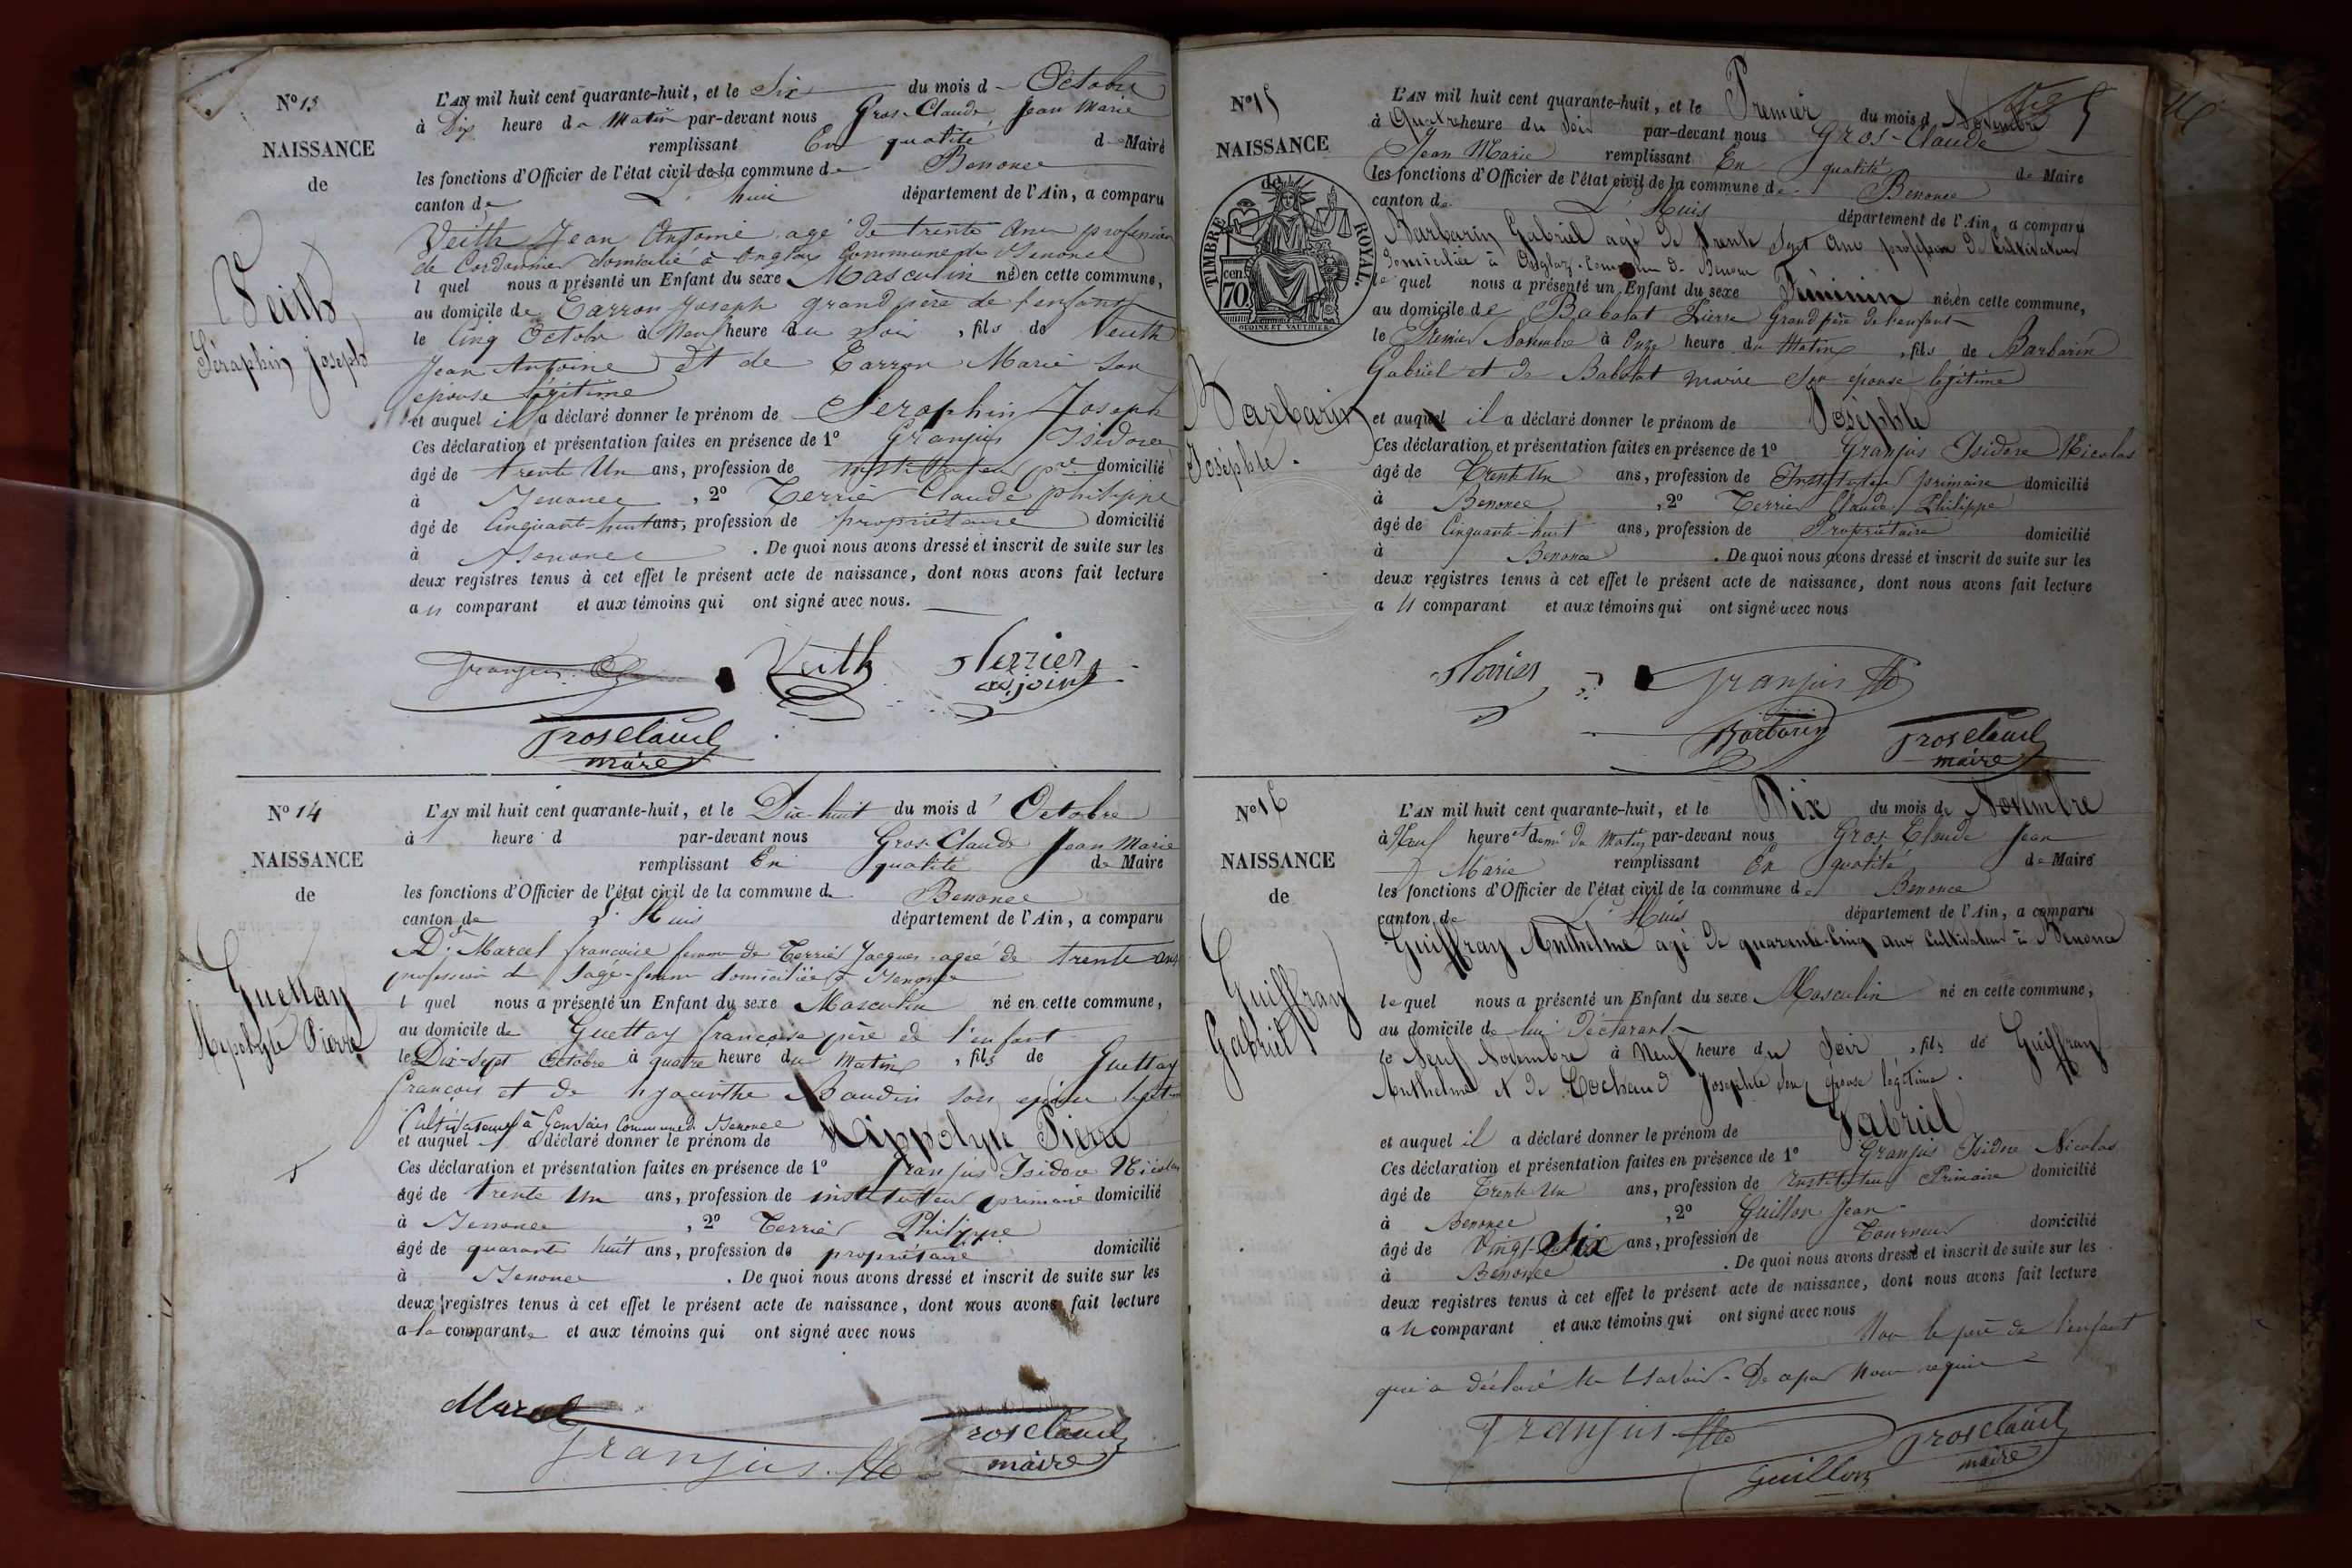 N° 13
NAISSANCE
de
Veith
Séraphin Joseph
L'AN mil huit cent quarante-huit, et le Six du mois d Octobre
à Dix heure du Matin par-devant nous Gros-Claude, Jean Marie
remplissant En qualité de Maire
les fonctions d'Officier de l'état civil de la commune de Benonce
canton de L'huis département de l'Ain, a comparu
Veith Jean Antoine agé de trente ans profession
de Cordonnier domicilié à Onglas Commune de Benonce
l quel nous a présenté un Enfant du sexe Masculin né en cette commune,
au domicile de Carron Joseph grand père de l'enfant
le Cinq Octobre à Neuf heure du Soir, fils de Veith
Jean Antoine et de Carron Marie son
épouse légitime
et auquel il a déclaré donner le prénom de Séraphin Joseph
Ces déclaration et présentation faites en présence de 1° Granjus Isidore
âgé de trente Un ans, profession de instituteur pre domicilié
à Benonce, 2° Terrier Claude philippe
âgé de Cinquante-huit ans, profession de propriétaire domicilié
à Benonce. De quoi nous avons dressé et inscrit de suite sur les
deux registres tenus à cet effet le présent acte de naissance, dont nous avons fait lecture
au comparant et aux témoins qui ont signé avec nous.
Granjus Veith Terrier
adjoint
Grosclaude
maire
N° 14
NAISSANCE
de
Guettay
Hypolyte Pierre
L'AN mil huit cent quarante-huit, et le Dix-huit du mois d' Octobre
à heure d par-devant nous Gros-Claude Jean Marie
remplissant En qualité de Maire
les fonctions d'Officier de l'état civil de la commune de Benonce
canton de L'Huis département de l'Ain, a comparu
Marcel francoise femme de Terrier Jacques agée de trente ans
profession de Sage-femme domiciliée à Benonce
l quel nous a présenté un Enfant du sexe Masculin né en cette commune,
au domicile de Guettay francois père de l'enfant
le Dix-Sept Octobre à quatre heure du Matin, fils de Guettay
françois et de hyacinthe Baudin son
Cultivateurs à Commune de Benonce
et auquel a déclaré donner le prénom de Hippolyte Pierre
Ces déclaration et présentation faites en présence de 1° Granjus Isidore Nicolas
âgé de trente Un ans, profession de instituteur primaire domicilié
à Benonce, 2° Terrier Philippe
âgé de quarante huit ans, profession de propriétaire domicilié
à Benonce. De quoi nous avons dressé et inscrit de suite sur les
deux registres tenus à cet effet le présent acte de naissance, dont nous avons fait lecture
a la comparante et aux témoins qui ont signé avec nous
Marcel
Granjus Grosclaude
maire
N° 15
NAISSANCE
de
TIMBRE ROYAL.
cen. 70
OUDINE ET VAUTHIER
Barbarin
Joséphte.
L'AN mil huit cent quarante-huit, et le Premier du mois d Novembre
à Quatre heure du Soir par-devant nous Gros-Claude
Jean Marie remplissant En qualité de Maire
les fonctions d'Officier de l'état civil de la commune de Benonce
canton de L'Huis département de l'Ain, a comparu
Barbarin Gabriel agé de trente Sept ans profession de Cultivateur
domiciliée à Onglas Commune de Benonce
le quel nous a présenté un Enfant du sexe Féminin né en cette commune,
au domicile de Babolat Pierre Grand père de l'enfant
le Premier Novembre à Onze heure du Matin, fils de Barbarin
Gabriel et de Babolat Marie Son épouse légitime
et auquel il a déclaré donner le prénom de Joséphte
Ces déclaration et présentation faites en présence de 1° Granjus Isidore Nicolas
âgé de Trente Un ans, profession de Instituteur primaire domicilié
à Benonce, 2° Terrier Claude Philippe
âgé de Cinquante-huit ans, profession de Propriétaire domicilié
à Benonce. De quoi nous avons dressé et inscrit de suite sur les
deux registres tenus à cet effet le présent acte de naissance, dont nous avons fait lecture
au comparant et aux témoins qui ont signé avec nous
Terrier Granjus
Barbarin Grosclaude
maire
N° 16
NAISSANCE
de
Guiffray
Gabriel
L'AN mil huit cent quarante-huit, et le Dix du mois de Novembre
à Neuf heure et demi du Matin par-devant nous Gros-Claude Jean
Marie remplissant En qualité de Maire
les fonctions d'Officier de l'état civil de la commune de Benonce
canton de L'Huis département de l'Ain, a comparu
Guiffray Anthelme agé de quarante-Cinq ans Cultivateur à Benonce
le quel nous a présenté un Enfant du sexe Masculin né en cette commune,
au domicile de lui Déclarant
le Neuf Novembre à Neuf heure du Soir, fils de Guiffray
Anthelme et de Cochaud Josephte Son épouse légitime.
et auquel il a déclaré donner le prénom de Gabriel
Ces déclaration et présentation faites en présence de 1° Granjus Isidore Nicolas
âgé de Trente Un ans, profession de Instituteur Primaire domicilié
à Benonce, 2° Guillon Jean
âgé de Vingt-Six ans, profession de Tourneur domicilié
à Benonce. De quoi nous avons dressé et inscrit de suite sur les
deux registres tenus à cet effet le présent acte de naissance, dont nous avons fait lecture
au comparant et aux témoins qui ont signé avec nous Non le père de l'enfant
qui a déclaré ne Savoir. De ce par Nous requis
Granjus Grosclaude
Guillon maire